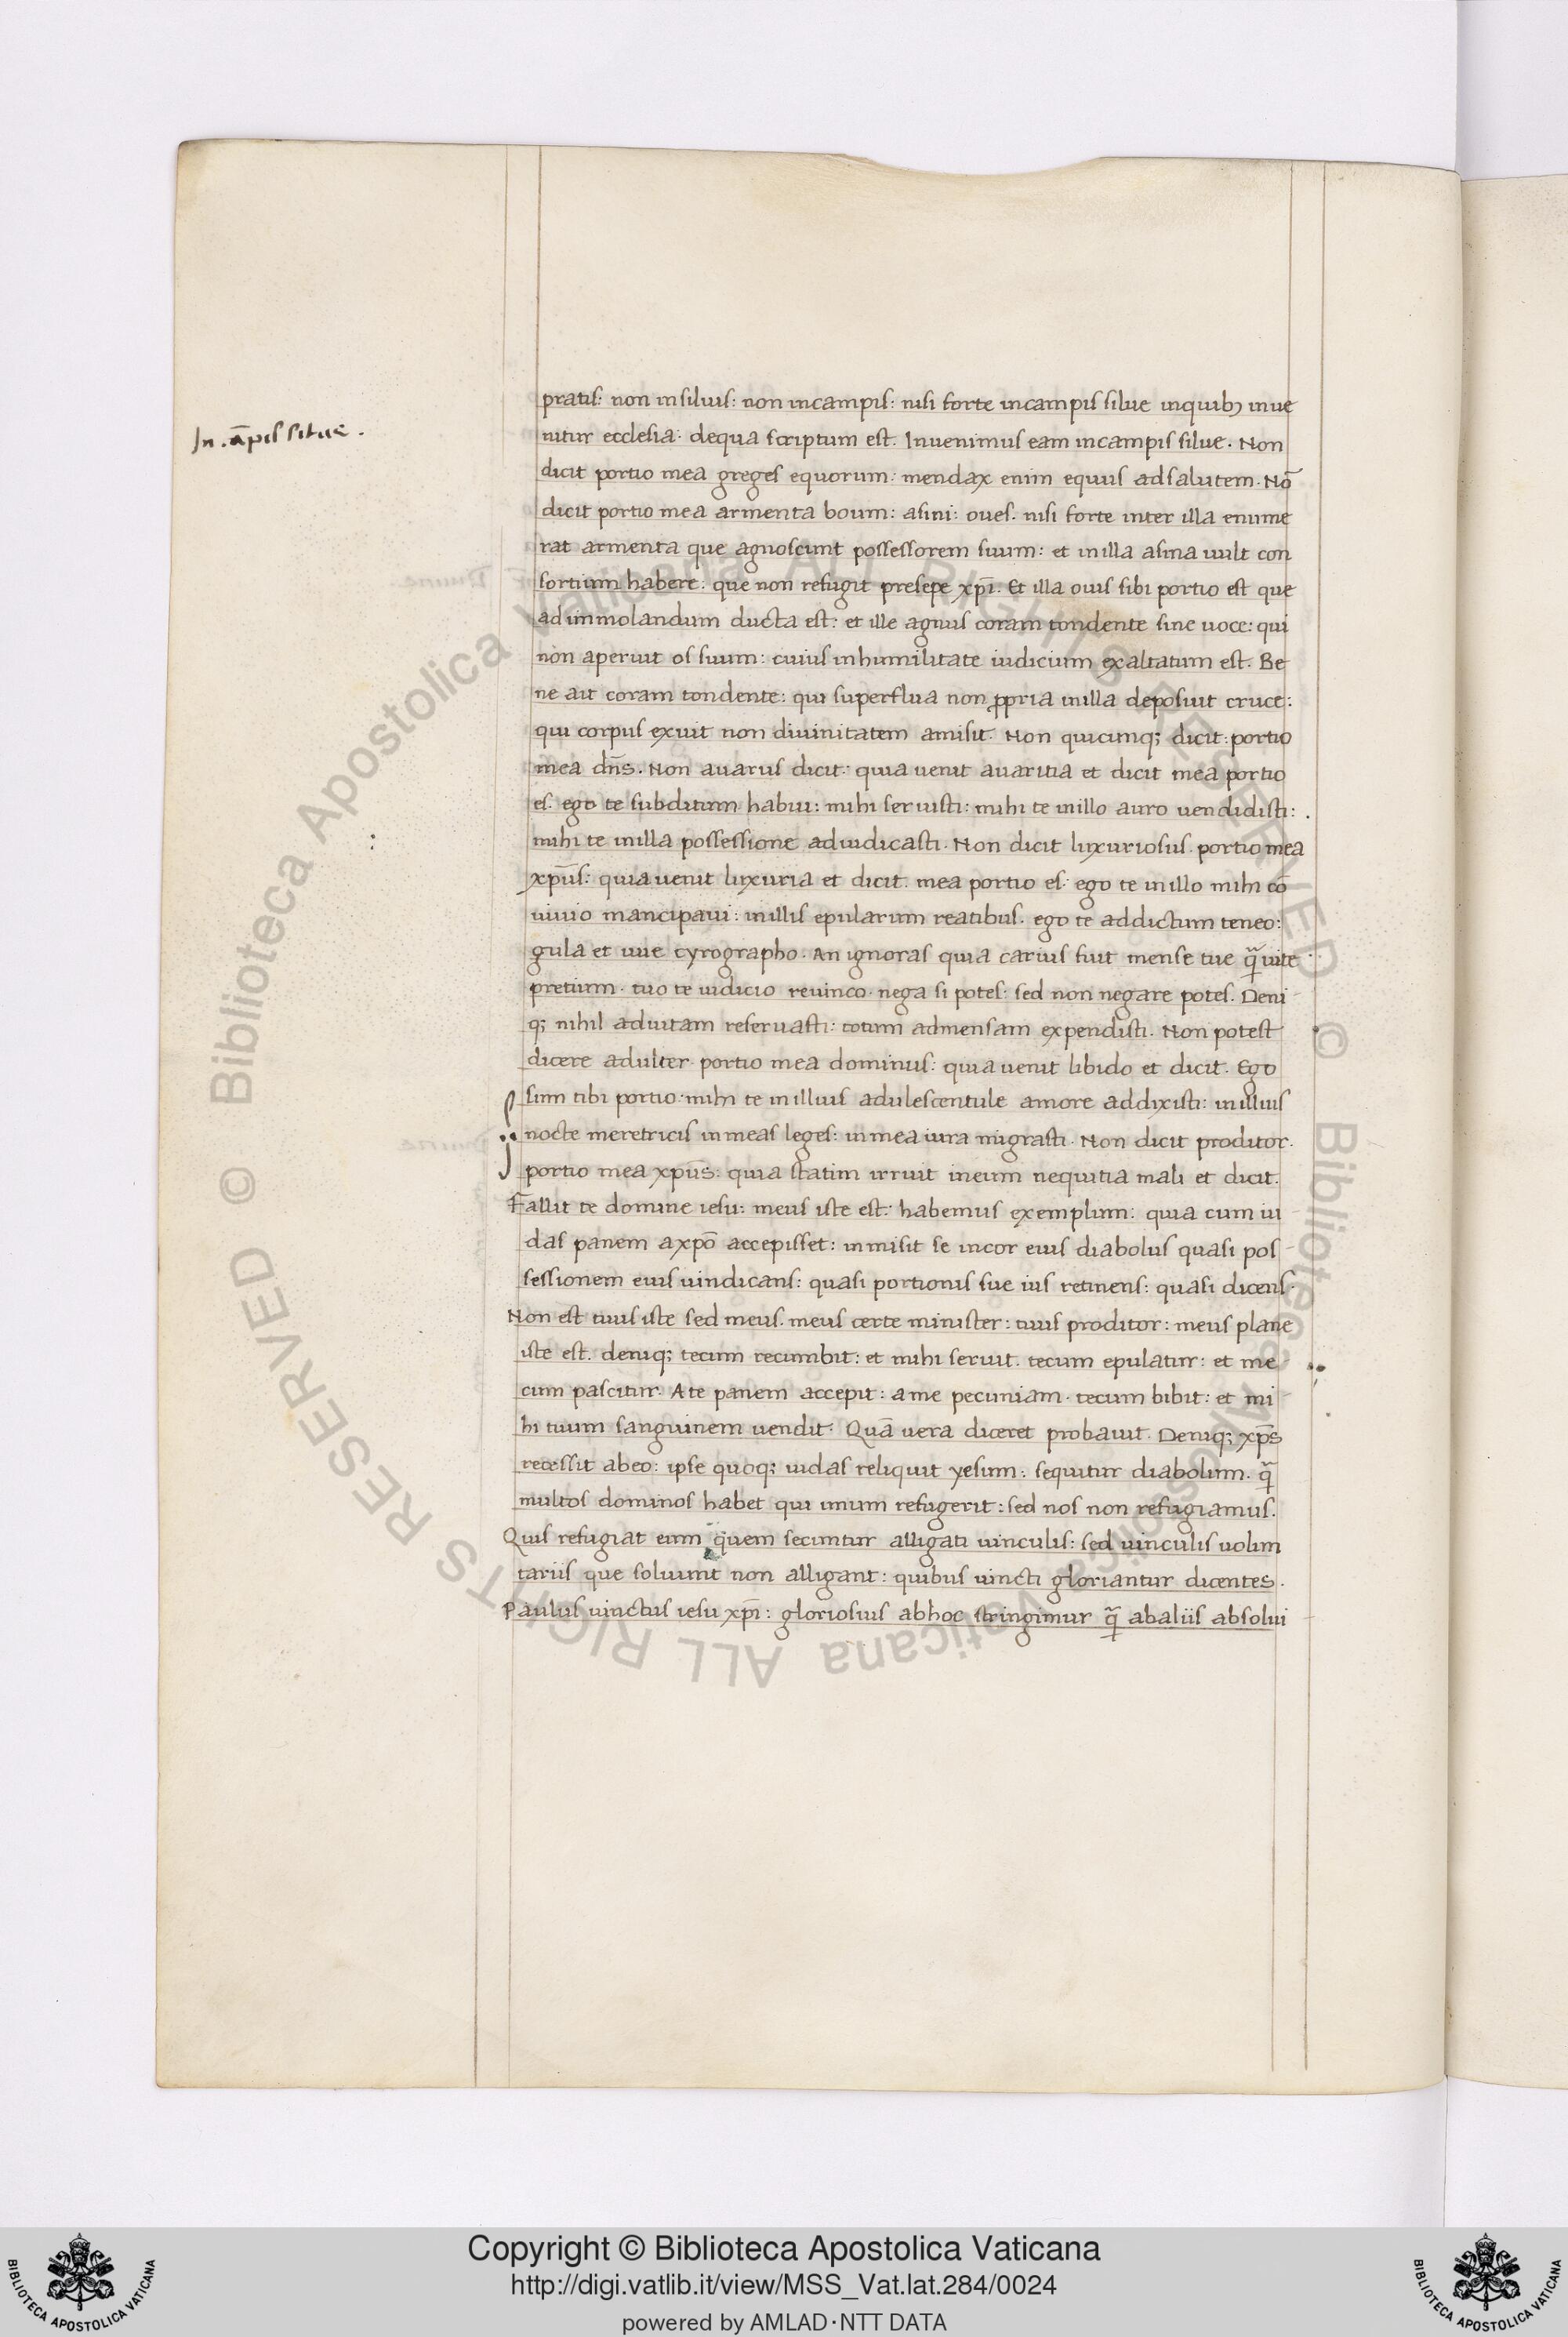 In. cãpis silue.
pratis: non insiluis: non incampis: nisi forte incampis silue inquibȝ inue
nitur ecclesia. dequa scriptum est. Inuenimus eam incampis silue. Non
dicit portio mea greges equorum: mendax enim equus adsalutem. Nō
dicit portio mea armenta boum: asini: oues. nisi forte inter illa enume
rat armenta que agnoscunt possessorem suum: et inilla asina uult con
sortium habere: que non refugit presepe xp̄i. Et illa ouis sibi portio est que
ad immolandum ducta est: et ille agnus coram tondente sine uoce: qui
non aperuit os suum: cuius inhumilitate iudicium exaltatum est. Be
ne ait coram tondente: qui superflua non ꝓpria inilla deposuit cruce:
qui corpus exuit non diuinitatem amisit. Non quicunq; dicit: portio
mea dn̄s. Non auarus dicit: quia uenit auaritia et dicit mea portio
es. ego te subditum habui: mihi seruisti: mihi te inillo auro uendidisti:
mihi te inilla possessione adiudicasti. Non dicit luxuriosus. portio mea
xp̄us: quia uenit luxuria et dicit. mea portio es. ego te inillo mihi cō
uiuio mancipaui: inillis epularum reatibus. ego te addictum teneo:
gula et uue cyrographo. An ignoras quia carius fuit mense tue q̃ uite
pretium. tuo te iudicio reuinco. nega si potes: sed non negare potes. Deni
q; nihil aduitam reseruasti: totum admensam expendisti. Non potest
dicere adulter. portio mea dominus: quia uenit libido et dicit. Ego
sum tibi portio. mihi te inillius adulescentule amore addixisti: inillius
nocte meretricis inmeas leges: inmea iura migrasti. Non dicit proditor.
portio mea xp̄us: quia statim irruit ineum nequitia mali et dicit.
Fallit te domine iesu: meus iste est. habemus exemplum: quia cum iu
das panem axpō accepisset: inmisit se incor eius diabolus quasi pos
sessionem eius uindicans: quasi portionis sue ius retinens: quasi dicens.
Non est tuus iste sed meus. meus certe minister: tuus proditor: meus plane
iste est. deniq; tecum recumbit: et mihi seruit. tecum epulatur: et me
cum pascitur. Ate panem accepit: ame pecuniam. tecum bibit: et mi
hi tuum sanguinem uendit. Quā uera diceret probauit. Deniq; xp̄s
recessit abeo: ipse quoq; iudas reliquit yesum: sequitur diabolum. q̃
multos dominos habet qui unum refugerit: sed nos non refugiamus.
Quis refugiat eum quem secuntur alligati uinculis: sed uinculis uolun
tariis que soluunt non alligant: quibus uincti gloriantur dicentes.
Paulus uinctus iesu xp̄i: gloriosius abhoc stringimur q̃ abaliis absolui
© Biblioteca Apostolica Vaticana ALL RIGHTS RESERVED
© Biblioteca Apostolica Vaticana ALL RIGHTS RESERVED
Copyright © Biblioteca Apostolica Vaticana
http://digi.vatlib.it/view/MSS_Vat.lat.284/0024
powered by AMLAD·NTT DATA
BIBLIOTECA APOSTOLICA VATICANA
BIBLIOTECA APOSTOLICA VATICANA